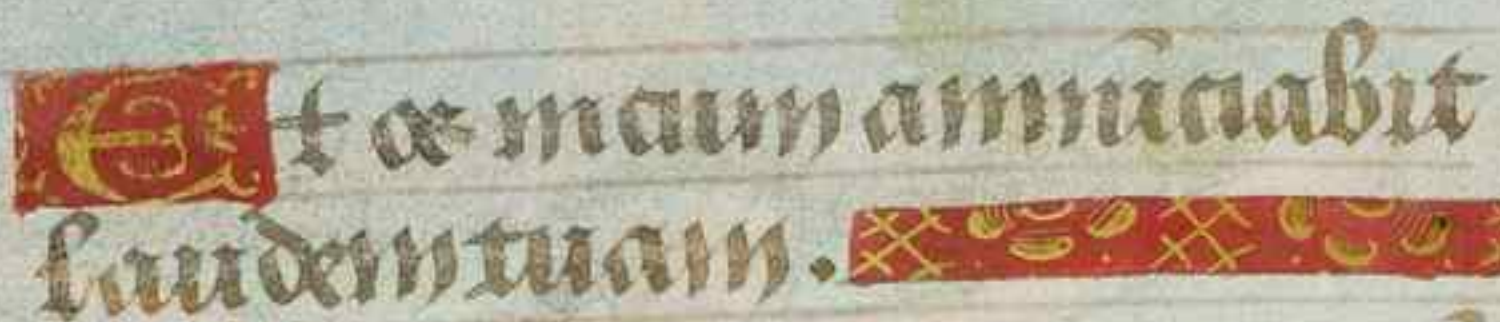 Et os meum annūciabit
laudem tuam.